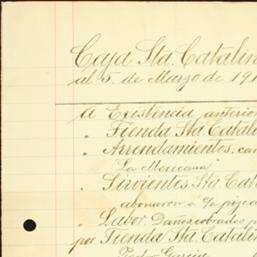 Caja Sta. Catalin
al 5. de Marzo de 191
A Existencia anterior
" Tienda Sta Catal
" Arrendamientos: ca
"La Mexicana"
" Sirvientes Sta Cat
abonaron á
" Labor
por Tienda Sta Catalin
García